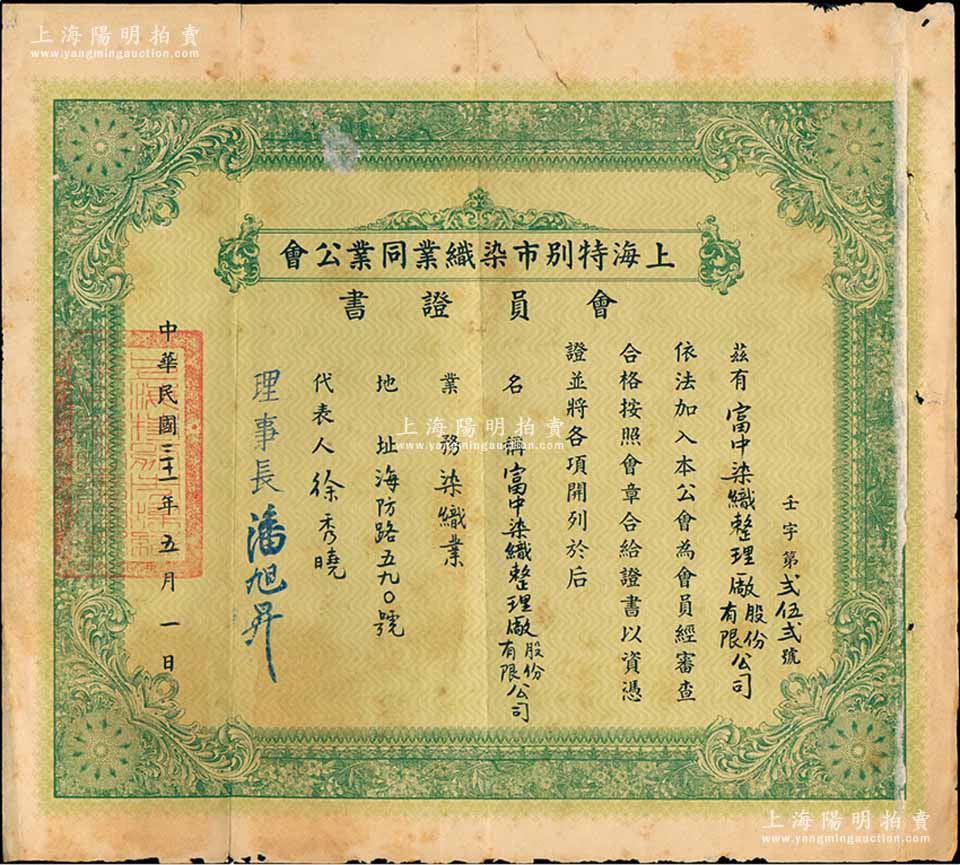 上海陽明拍賣
www.yangmingauction.com
上海特別市染織業同業公會
會員證書
壬字第弍伍弍號
茲有富中染織整理廠股份有限公司
依法加入本公會為會員經審查
合格按照會章合給證書以資憑
證並將各項開列於后
名稱富中染織整理廠股份有限公司
業務染織業
地址海防路五九〇號
代表人徐秀曉
理事長潘旭昇
中華民國三十一年五月一日
上海陽明拍賣
www.yangmingauction.com
上海陽明拍賣
www.yangmingauction.com